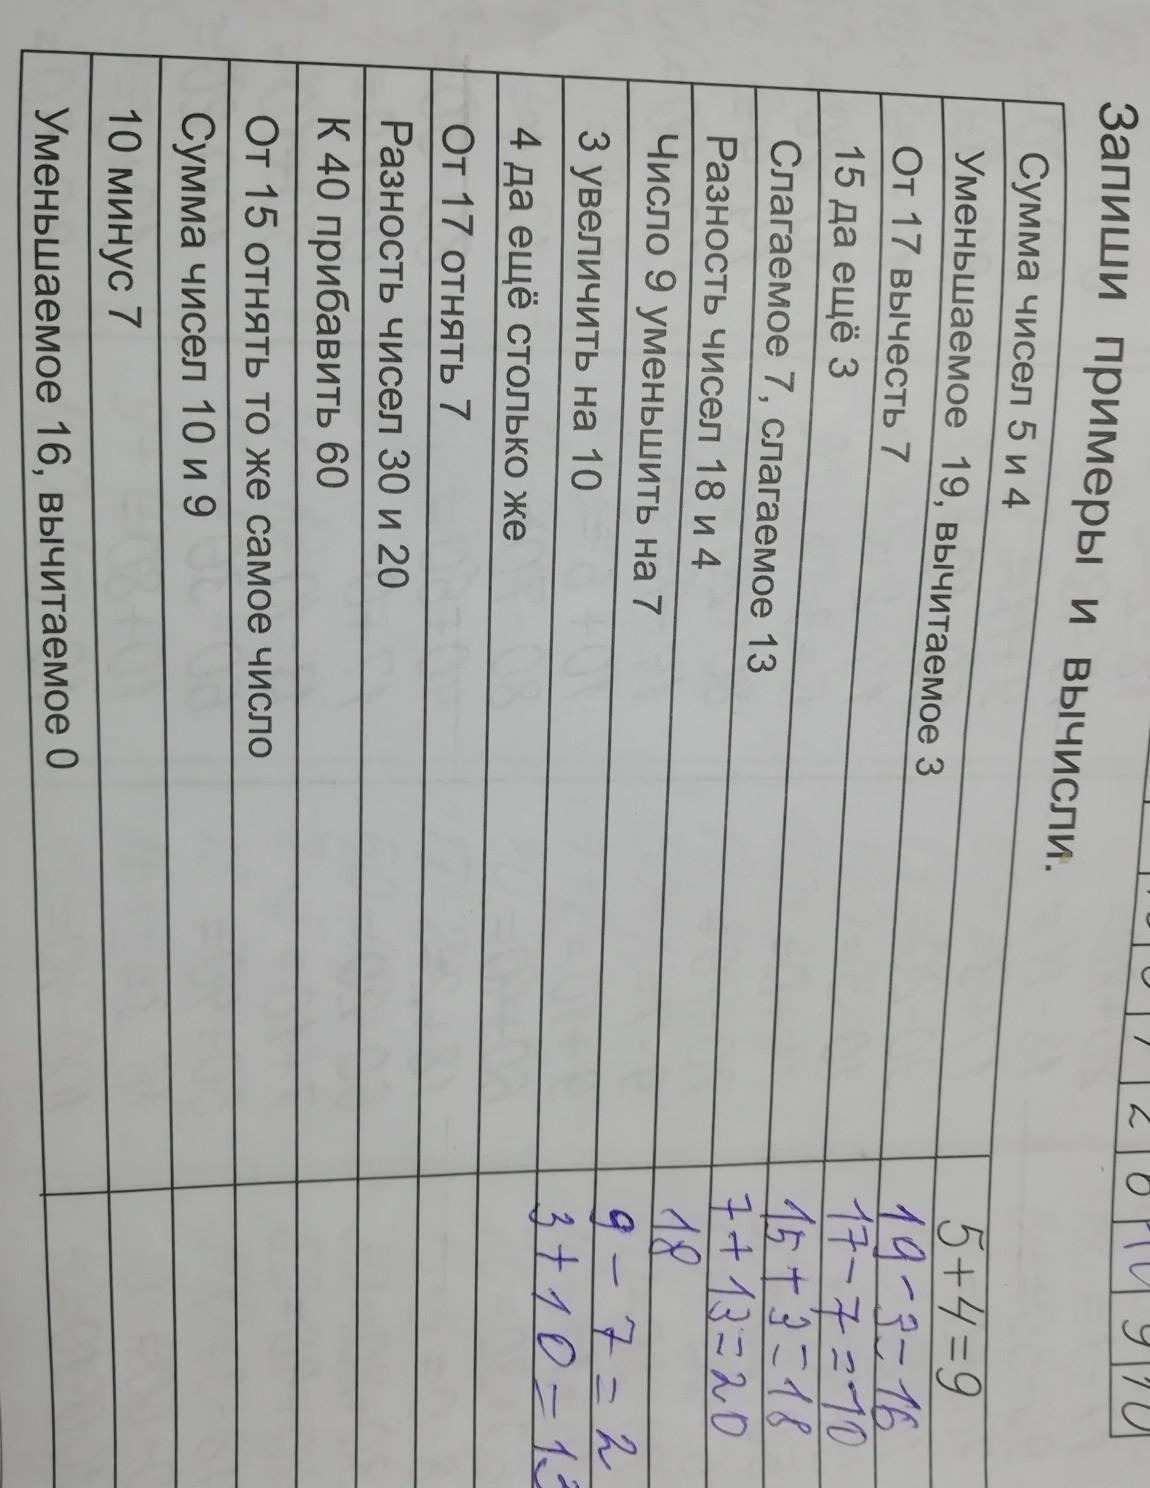 Запиши примеры и вычисли.
Сумма чисел 5 и 4 5+4=9
Уменьшаемое 19, вычитаемое 3 19-3=16
От 17 вычесть 7 17-7=10
15 да ещё 3 15+3=18
Слагаемое 7, слагаемое 13 7+13=20
Разность чисел 18 и 4 18
Число 9 уменьшить на 7 9-7=2
3 увеличить на 10 3+10=13
4 да ещё столько же
От 17 отнять 7
Разность чисел 30 и 20
К 40 прибавить 60
От 15 отнять то же самое число
Сумма чисел 10 и 9
10 минус 7
Уменьшаемое 16, вычитаемое 0